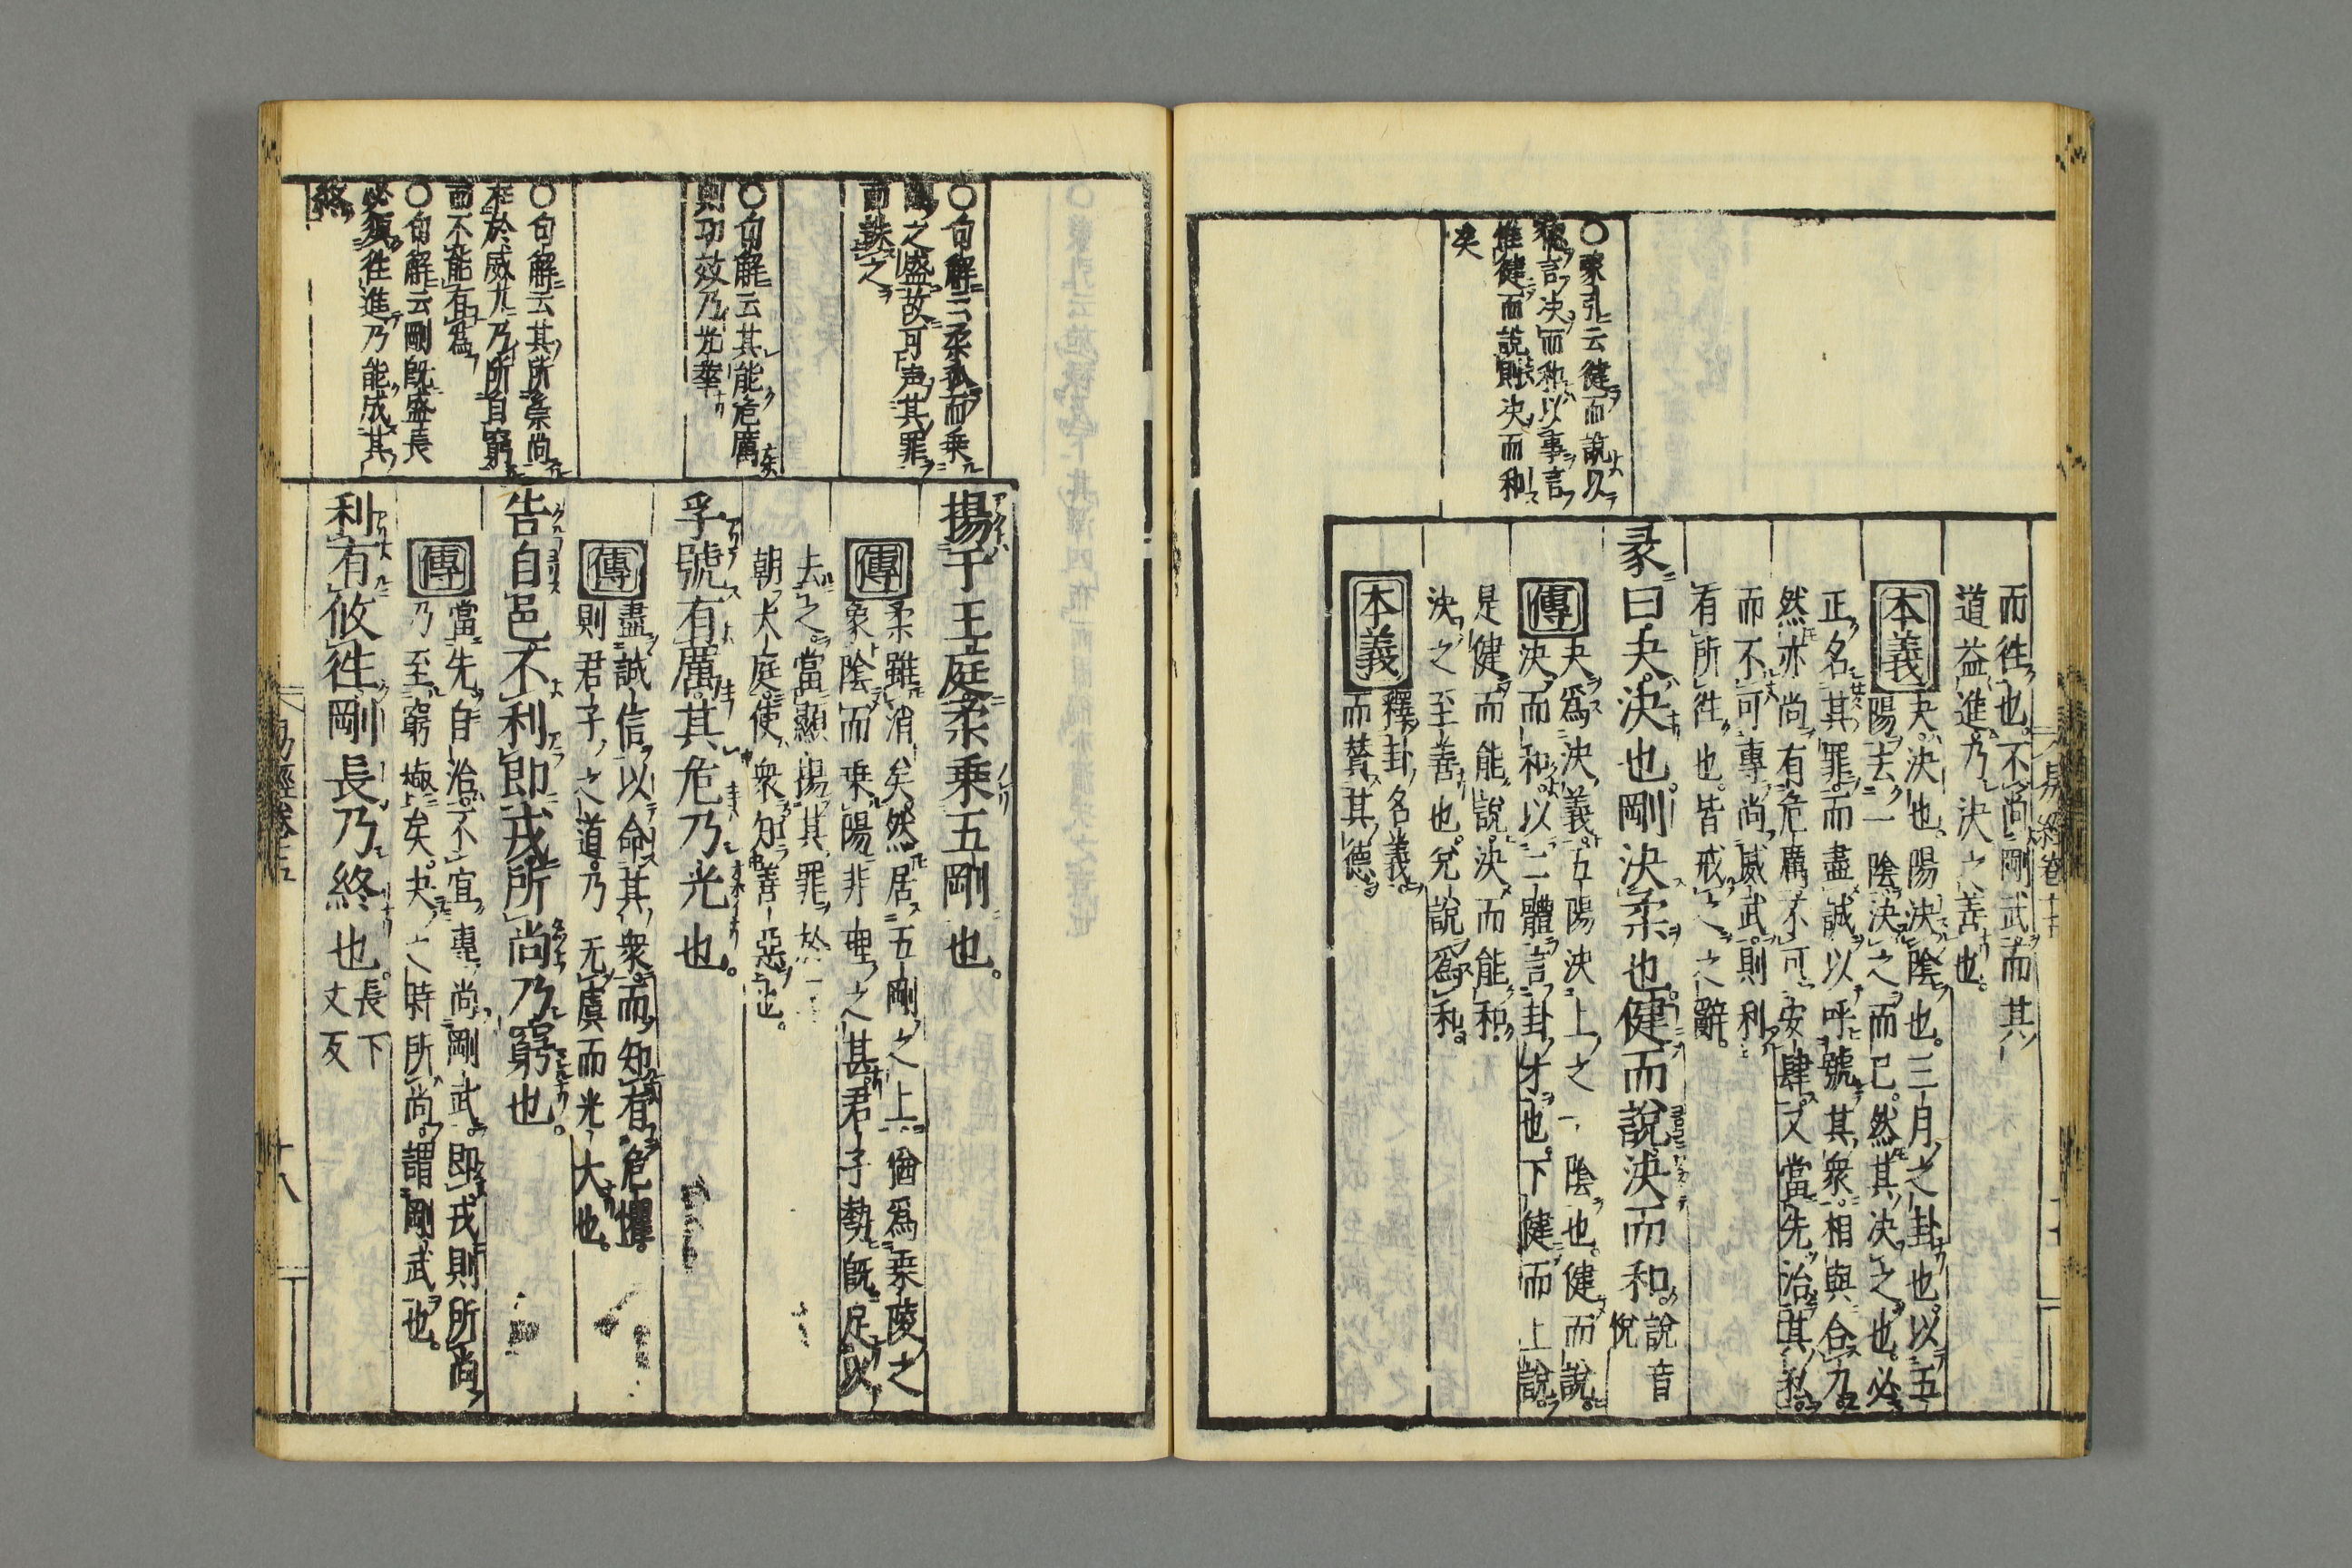 而往也。不尚剛武而其
道益進。乃決之善也。
本義
夬。決也。陽決陰也。三月之卦也。以五
陽去一陰。決之而已。然其決之也。必
正名其罪。而盡誠以呼號其衆。相與合力。
然亦尚有危厲。不可安肆。又當先治其私。
而不可專尚威武。則利
有所往也。皆戒之之辭。
彖曰。夬。決也。剛決柔也。健而說。決而和。說音
悅
傳
夬爲決義。五陽決上之一陰也。健而說。
決而和。以二體言卦才也。下健而上說。
是健而能說。決而能和。
決之至善也。兌說爲和。
本義
釋卦名義
而贊其德。
○蒙引云健而說以
德言決而和以事言
惟健而說則決而和
矣
易經卷十五
揚于王庭。柔乘五剛也。
傳
柔雖消矣。然居五剛之上。猶爲乘陵之
象。陰而乘陽。非理之甚。君子勢既足以
去之。當顯揚其罪於
朝大庭。使衆知善惡也。
孚號有厲。其危乃光也。
傳
盡誠信以命其衆。而知有危懼。
則君子之道。乃无虞而光大也。
告自邑。不利即戎。所尚乃窮也。
傳
當先自治。不宜專尚剛武。即戎則所尚
乃至窮極矣。夬之時所尚。謂剛武也。
利有攸往。剛長乃終也。長下
丈反
○句解云柔孤而乘
剛之盛故可声其罪
而誅之
○句解云其能危厲
則功效乃光華
○句解云其所崇尚
在於威力乃所自窮
而不能有爲
○句解云剛既盛長
必須往進乃能成其
終
易經卷十五
十八